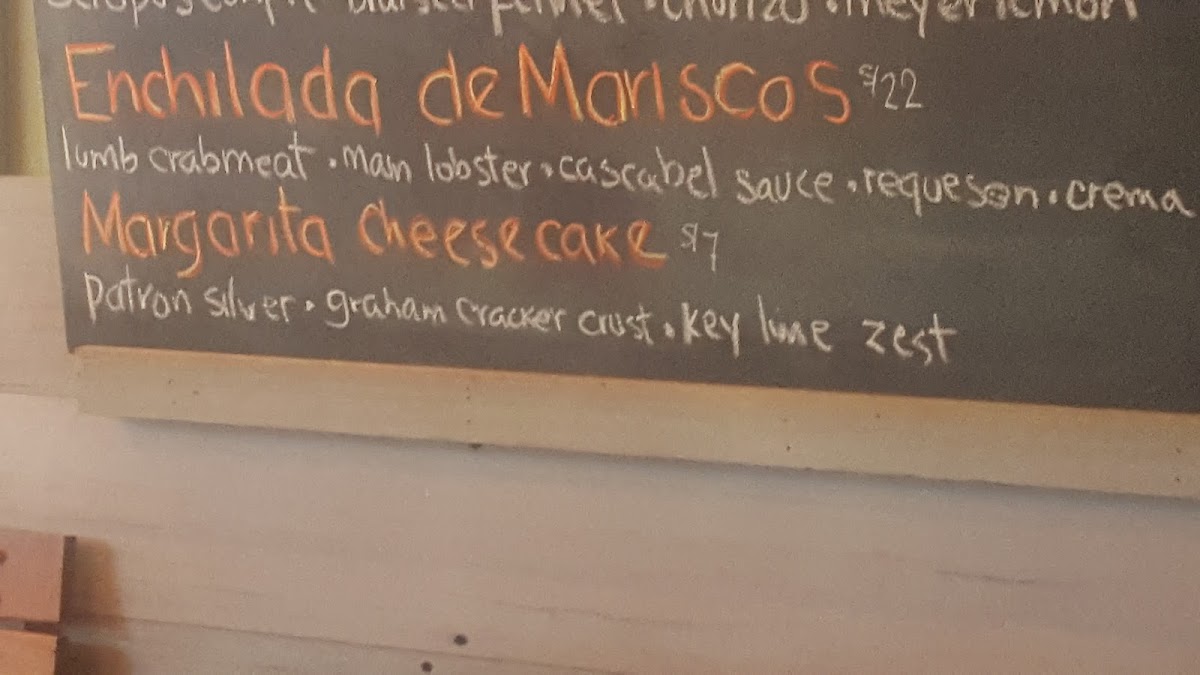 chorizo • meyer lemon
Enchilada de Mariscos $22
lumb crabmeat • Main lobster • cascabel sauce • requeson • crema
Margarita Cheesecake $7
patron silver • graham cracker crust • key lime zest